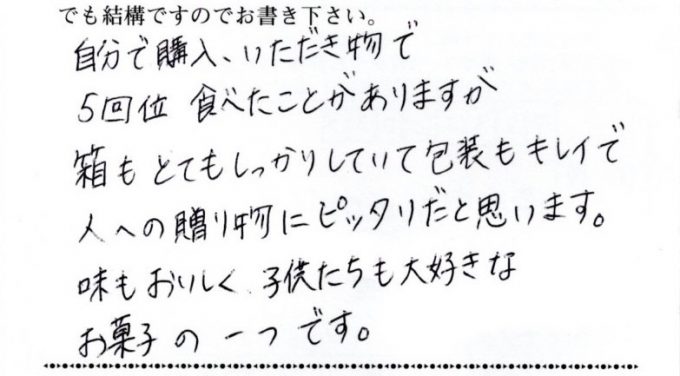 でも結構ですのでお書き下さい。
自分で購入、いただき物で
5回位 食べたことがありますが
箱もとてもしっかりしていて包装もキレイで
人への贈り物にピッタリだと思います。
味もおいしく、子供たちも大好きな
お菓子の一つです。